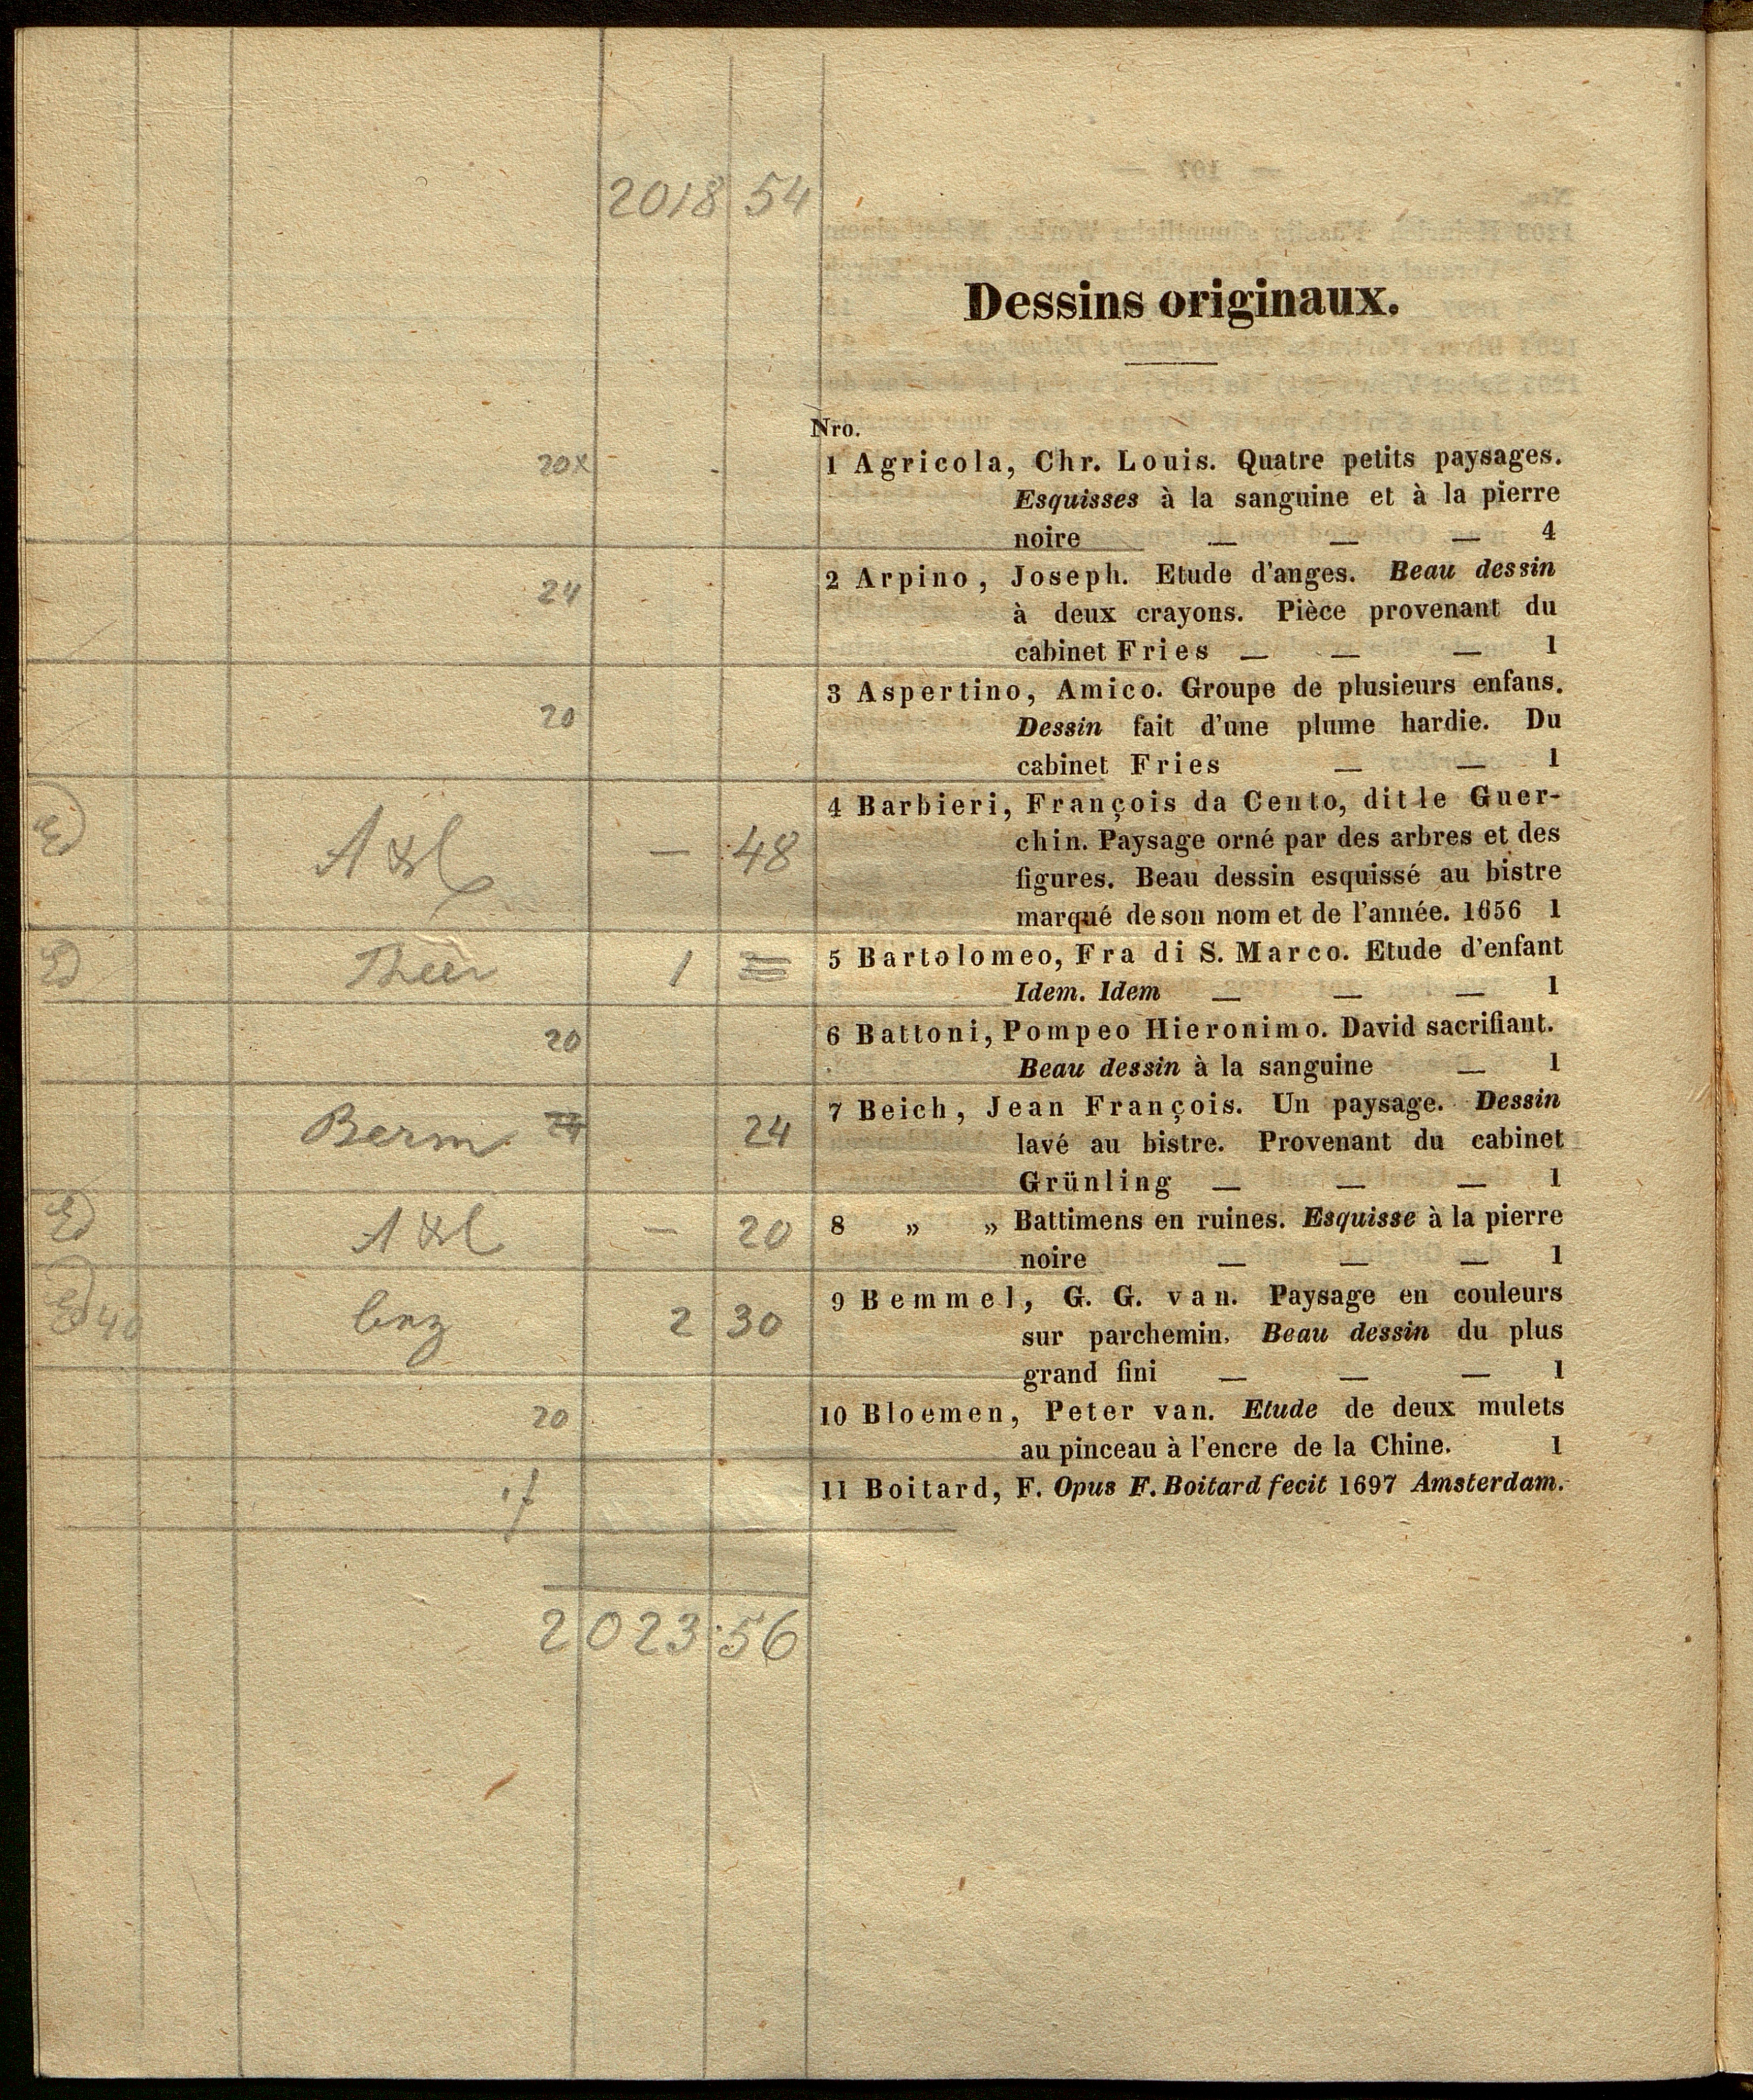 2018 54
Dessins originaux.
Nro.
20x 1 Agricola, Chr. Louis. Quatre petits paysages.
Esquisses à la sanguine et à la pierre
noire — — — 4
24 2 Arpino, Joseph. Etude d'anges. Beau dessin
à deux crayons. Pièce provenant du
cabinet Fries — — — 1
20 3 Aspertino, Amico. Groupe de plusieurs enfans.
Dessin fait d'une plume hardie. Du
cabinet Fries — — 1
4 Barbieri, François da Cento, dit le Guer-
— 48 chin. Paysage orné par des arbres et des
figures. Beau dessin esquissé au bistre
marqué de son nom et de l'année. 1656 1
Theer 1 = 5 Bartolomeo, Fra di S. Marco. Etude d'enfant
Idem. Idem — — — 1
20 6 Battoni, Pompeo Hieronimo. David sacrifiant.
Beau dessin à la sanguine — 1
Berm 24 7 Beich, Jean François. Un paysage. Dessin
lavé au bistre. Provenant du cabinet
Grünling — — — 1
— 20 8 „ „ Battimens en ruines. Esquisse à la pierre
noire — — — 1
40 2 30 9 Bemmel, G. G. van. Paysage en couleurs
sur parchemin. Beau dessin du plus
grand fini — — — 1
20 10 Bloemen, Peter van. Etude de deux mulets
au pinceau à l'encre de la Chine. 1
11 Boitard, F. Opus F. Boitard fecit 1697 Amsterdam.
2023:56